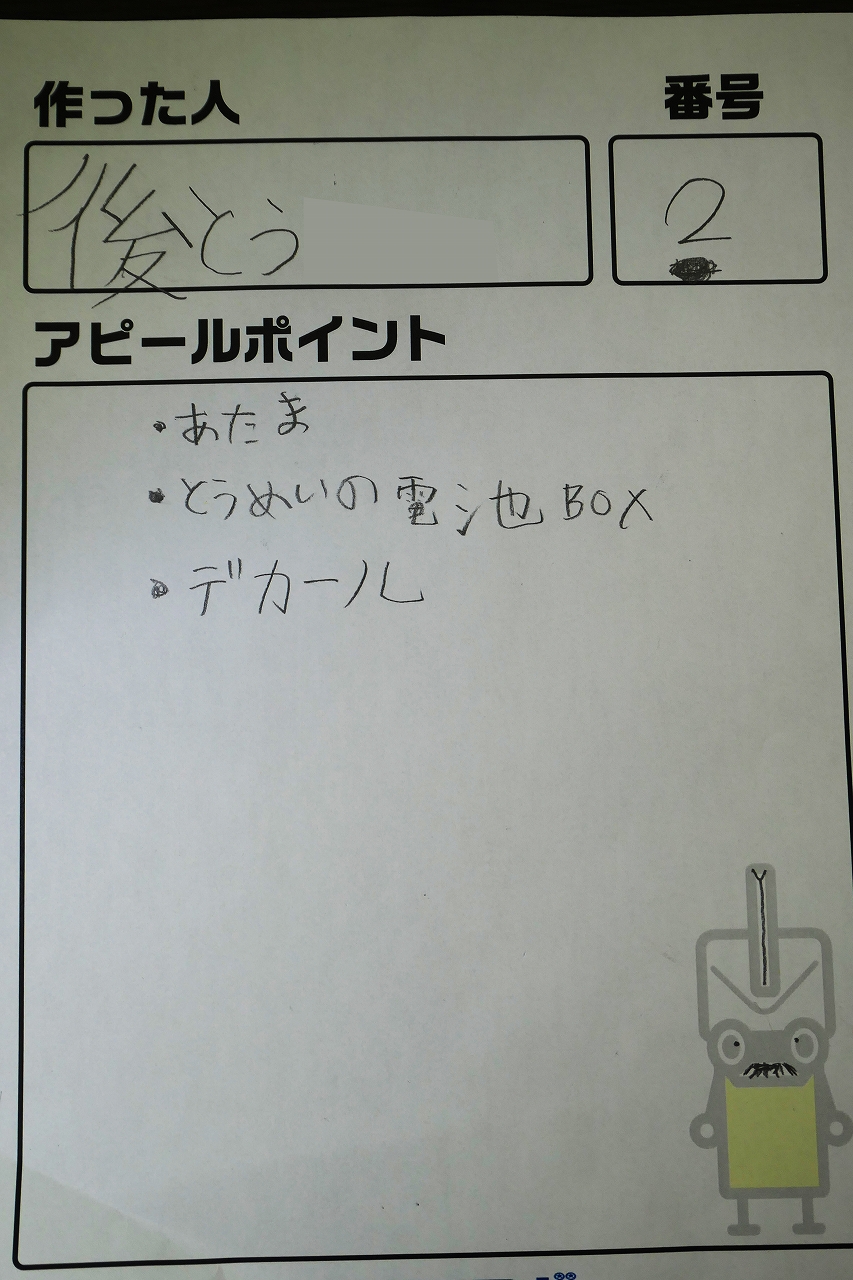 作った人 番号
後とう 2
アピールポイント
・あたま
・とうめいの電池BOX
・デカール